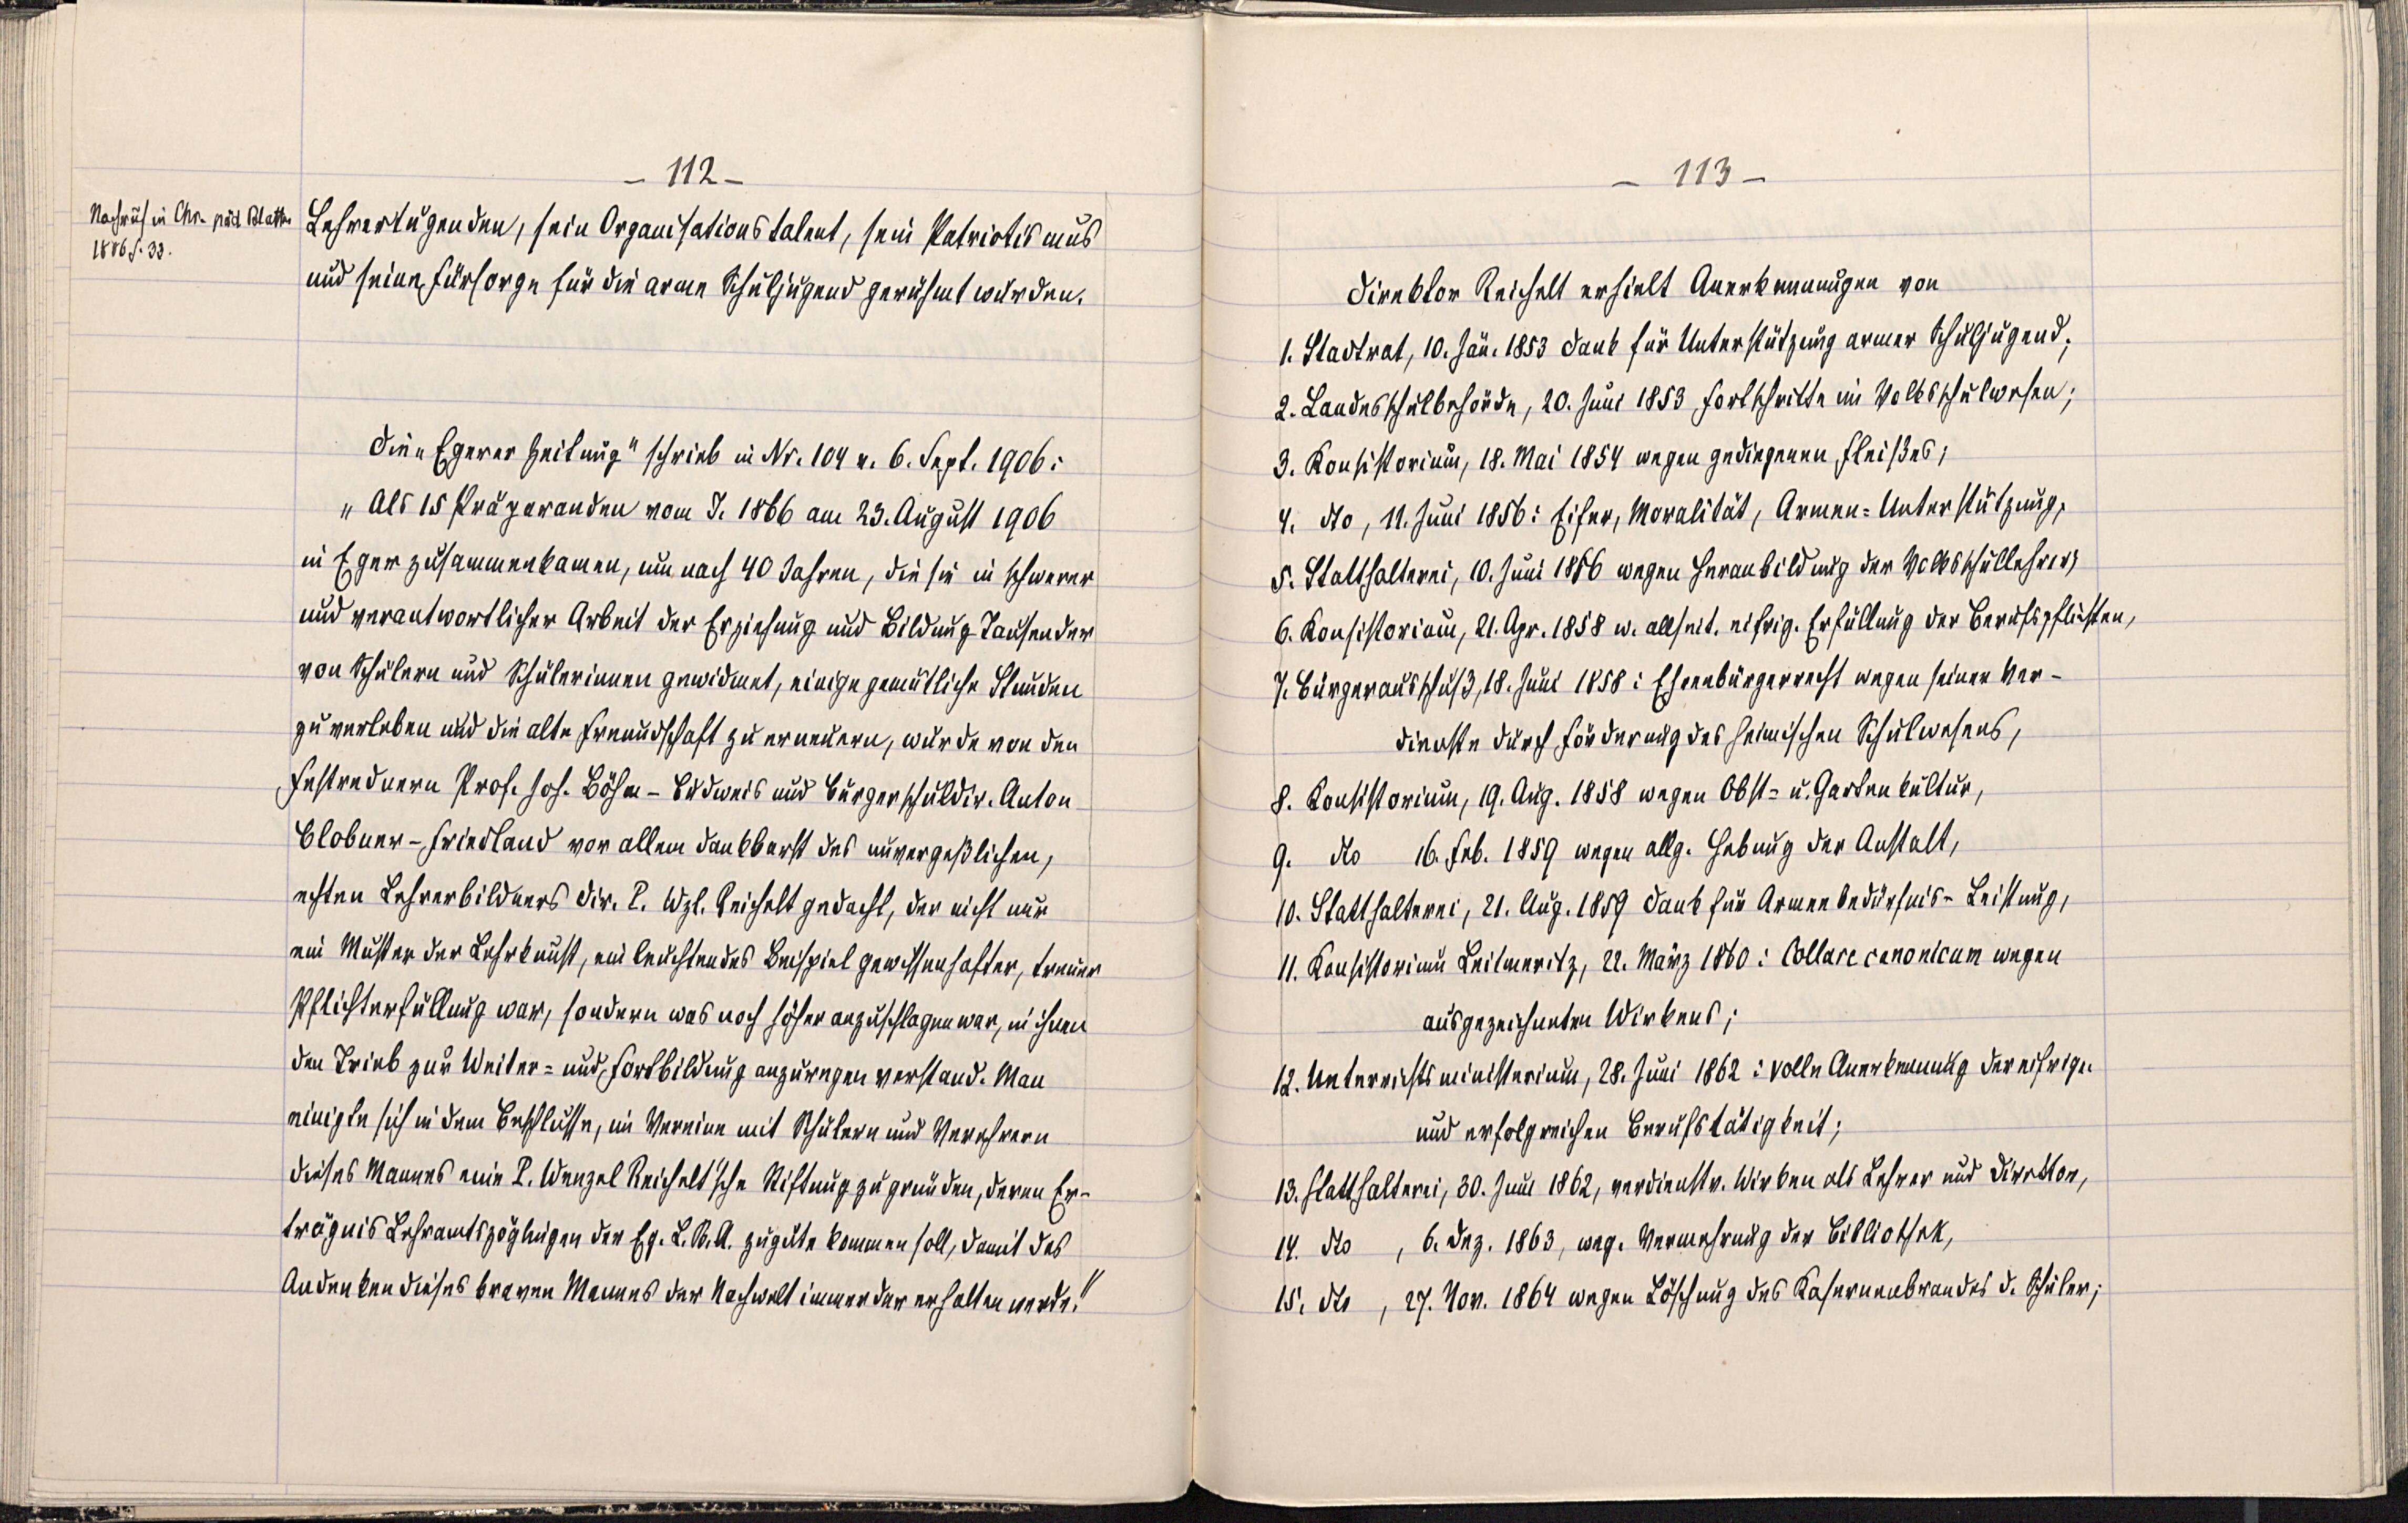 - 112 -
Nachruf in Chr. päd. Blätter
1886 S. 33.
Lehrertugenden, sein Organisationstalent, sein Patriotismus
und seine Fürsorge für die arme Schuljugend gerühmt wurden.
Die „Egerer Zeitung" schrieb in Nr. 104 v. 6. Sept. 1906:
„Als 15 Präparanden vom J. 1866 am 23. August 1906
in Eger zusammenkamen, um nach 40 Jahren, die sie in schwerer
und verantwortlicher Arbeit der Erziehung und Bildung Tausender
von Schülern und Schülerinnen gewidmet, einige gemütliche Stunden
zu verleben und die alte Freundschaft zu erneuern, wurde von den
Festrednern Prof. Jos. Böhm - Budweis und Bürgerschuldir. Anton
Clobner - Friedland vor allem dankbarst des unvergeßlichen,
echten Lehrerbildners Dir. P. Wzl. Reichelt gedacht, der nicht nur
ein Muster der Lehrkunst, ein leuchtendes Beispiel gewissenhafter, treuer
Pflichterfüllung war, sondern was noch höher anzuschlagen war, in ihnen
den Trieb zur Weiter= und Fortbildung anzuregen verstand. Man
einigte sich in dem Beschlusse, im Vereine mit Schülern und Verehrern
dieses Mannes eine P. Wenzel Reichelt'sche Stiftung zu gründen, deren Er-
trägnis Lehramtszöglingen der Eg. L. B. A. zugute kommen soll, damit das
Andenken dieses braven Mannes der Nachwelt immerdar erhalten werde."
- 113 -
Direktor Reichelt erhielt Anerkennungen von
1. Stadtrat, 10. Jän. 1853 Dank für Unterstützung armer Schuljugend;
2. Landesschulbehörde, 20. Juni 1853 Fortschritte im Volksschulwesen;
3. Konsistorium, 18. Mai 1854 wegen gediegenen Fleißes;
4. dto, 11. Juni 1856: Eifer, Moralität, Armen=Unterstützung,
5. Statthalterei, 10. Juni 1856 wegen Heranbildung der Volksschullehrer;
6. Konsistorium, 21. Apr. 1858 w. allseit. eifrig. Erfüllung der Berufspflichten,
7. Bürgerausschuß, 18. Juni 1858: Ehrenbürgerrecht wegen seiner Ver-
dienste durch Förderung des heimischen Schulwesens,
8. Konsistorium, 19. Aug. 1858 wegen Obst= u. Gartenkultur,
9. dto 16. Feb. 1859 wegen allg. Hebung der Anstalt,
10. Statthalterei, 21. Aug. 1859 Dank für Armenbedürfnis-Leistung,
11. Konsistorium Leitmeritz, 22. März 1860: Collare canonicum wegen
ausgezeichneten Wirkens;
12. Unterrichtsministerium, 28. Juni 1862: volle Anerkennung der eifrigen
und erfolgreichen Berufstätigkeit;
13. Statthalterei, 30. Juni 1862, verdienstv. Wirken als Lehrer und Direktor,
14. dto, 6. Dez. 1863, weg. Vermehrung der Bibliothek,
15. dto, 27. Nov. 1864 wegen Löschung des Kasernenbrandes d. Schüler;